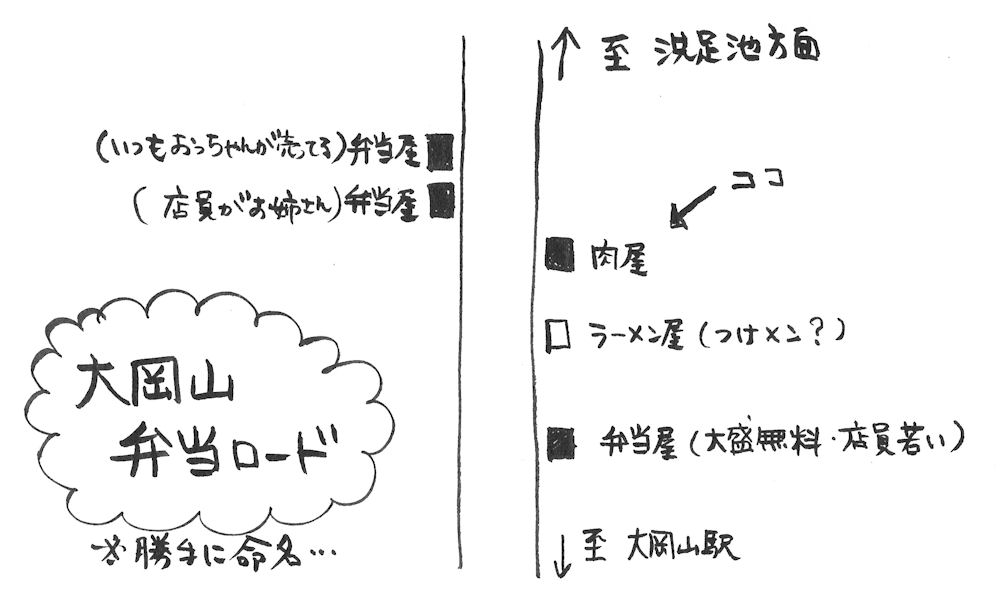 ↑至 洗足池方面
(いつもおっちゃんが売ってる)弁当屋
(店員がお姉さん)弁当屋
ココ
肉屋
ラーメン屋(つけメン?)
大岡山
弁当ロード
弁当屋(大盛無料・店員若い)
※勝手に命名…
↓至 大岡山駅